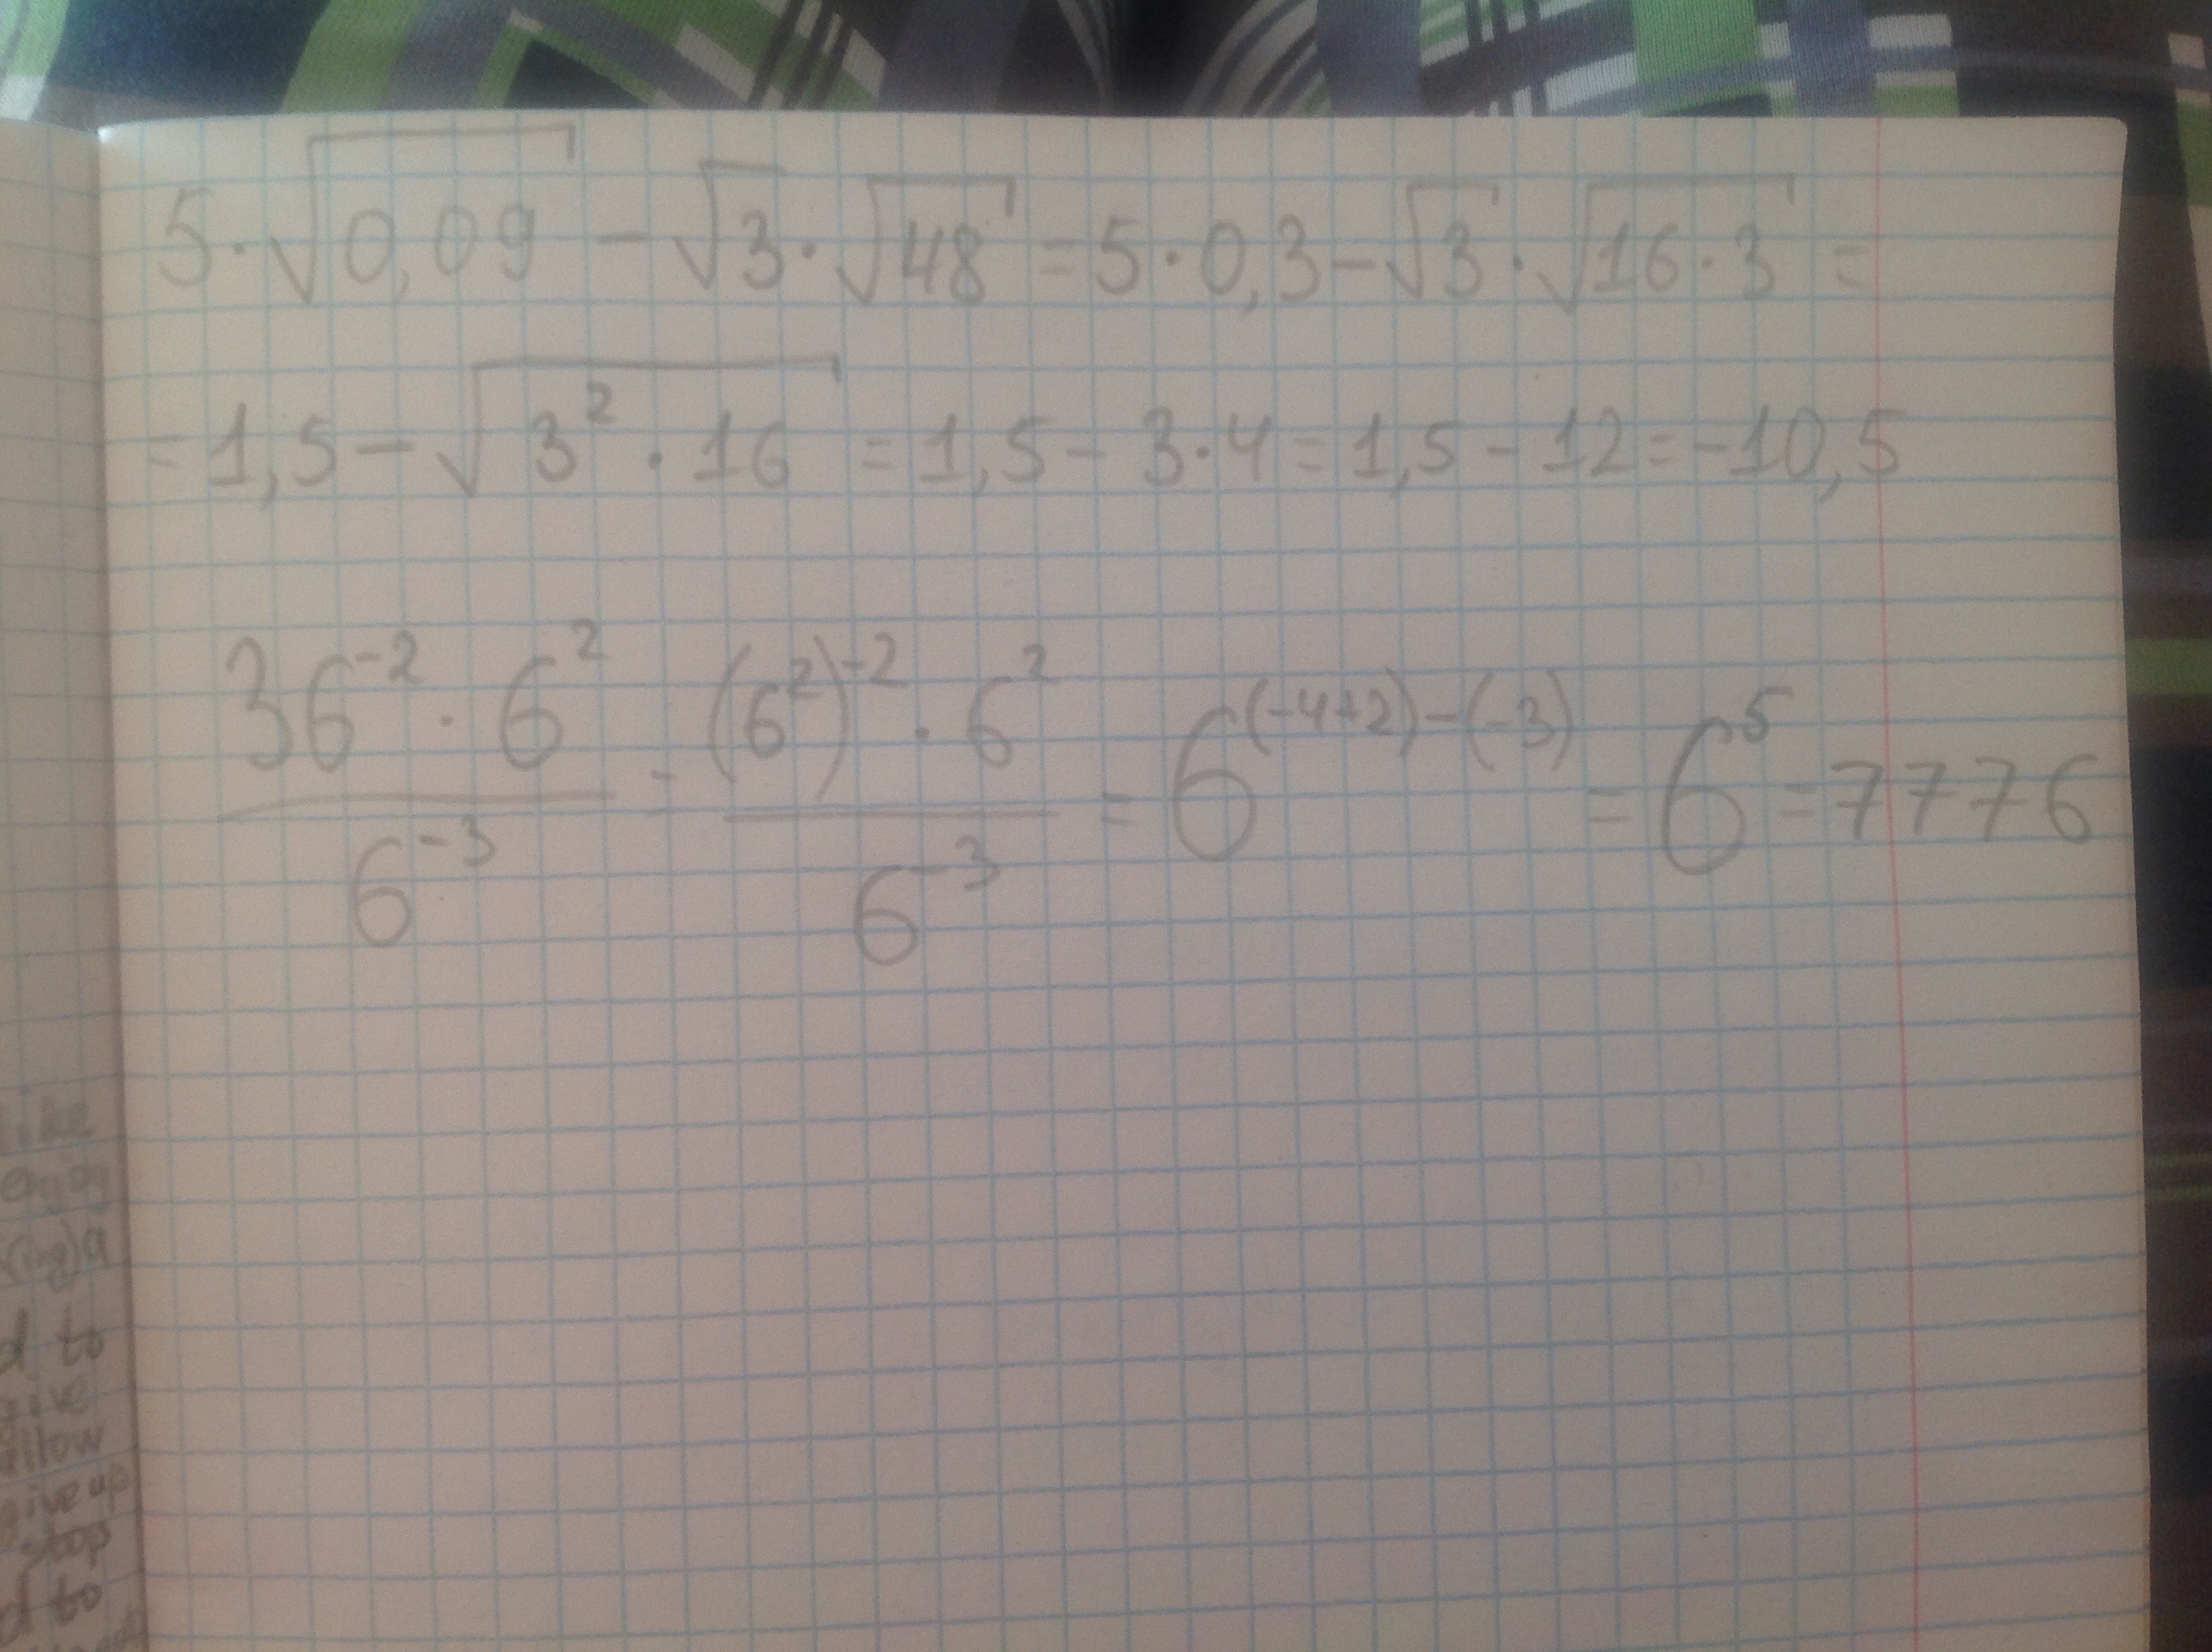 5·√0,09 − √3·√48 = 5·0,3 − √3·√16·3 =
= 1,5 − √3²·16 = 1,5 − 3·4 = 1,5 − 12 = −10,5
36⁻²·6² / 6⁻³ = (6²)⁻²·6² / 6⁻³ = 6⁽⁻⁴⁺²⁾⁻⁽⁻³⁾ = 6⁵ = 7776
enjoy
(ing)a
d to
give
allow
give up
stop
d to